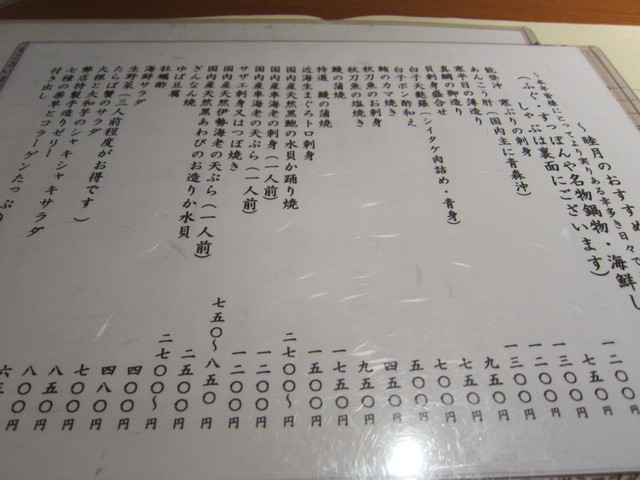 ~睦月のおすすめ
~本年皆様にとってより実りある幸多き日々で
(ふぐ、すっぽんや名物鍋物・海鮮し
ゃぶしゃぶは裏面にございます)
能登沖 寒ぶりの刺身
あんこう肝(国内主に青森沖)
寒平目の薄造り
真鯛の御造り
貝刺身盛合せ
白子天麩羅(シイタケ肉詰め・青身)
白子ポン酢和え
鮪のカマ焼き
秋刀魚のお刺身
秋刀魚の塩焼き
鰻の蒲焼
特選 鰻の蒲焼
近海生まぐろトロ刺身
国内産天然黒鮑の水貝か踊り焼
国内産車海老の刺身(一人前)
国内産車海老の天ぷら(一人前)
サザエ刺身又はつぼ焼き
国内産天然伊勢海老の天ぷら(一人前)
国内産天然黒あわびのお造りか水貝
ぎんなん焼
ゆば豆腐
牡蠣酢
海鮮サラダ
生野菜サラダ
たらば蟹(三人前程度がお得です)
大根と大葉のサラダ
弊店特製大和芋のシャキシャキサラダ
七種の薬草とコラーゲンたっぷ
付き出し
一二〇〇円
七五〇円
一三〇〇円
一二〇〇円
一三〇〇円
九五〇円
七五〇円
七〇〇円
五〇〇円
四五〇円
九五〇円
一七五〇円
一五〇〇円
二七〇〇~円
一二〇〇円
一二〇〇円
七五〇~八五〇円
二五〇〇円
二七〇〇~円
四〇〇円
四八〇円
七〇〇円
八〇〇円
八〇〇円